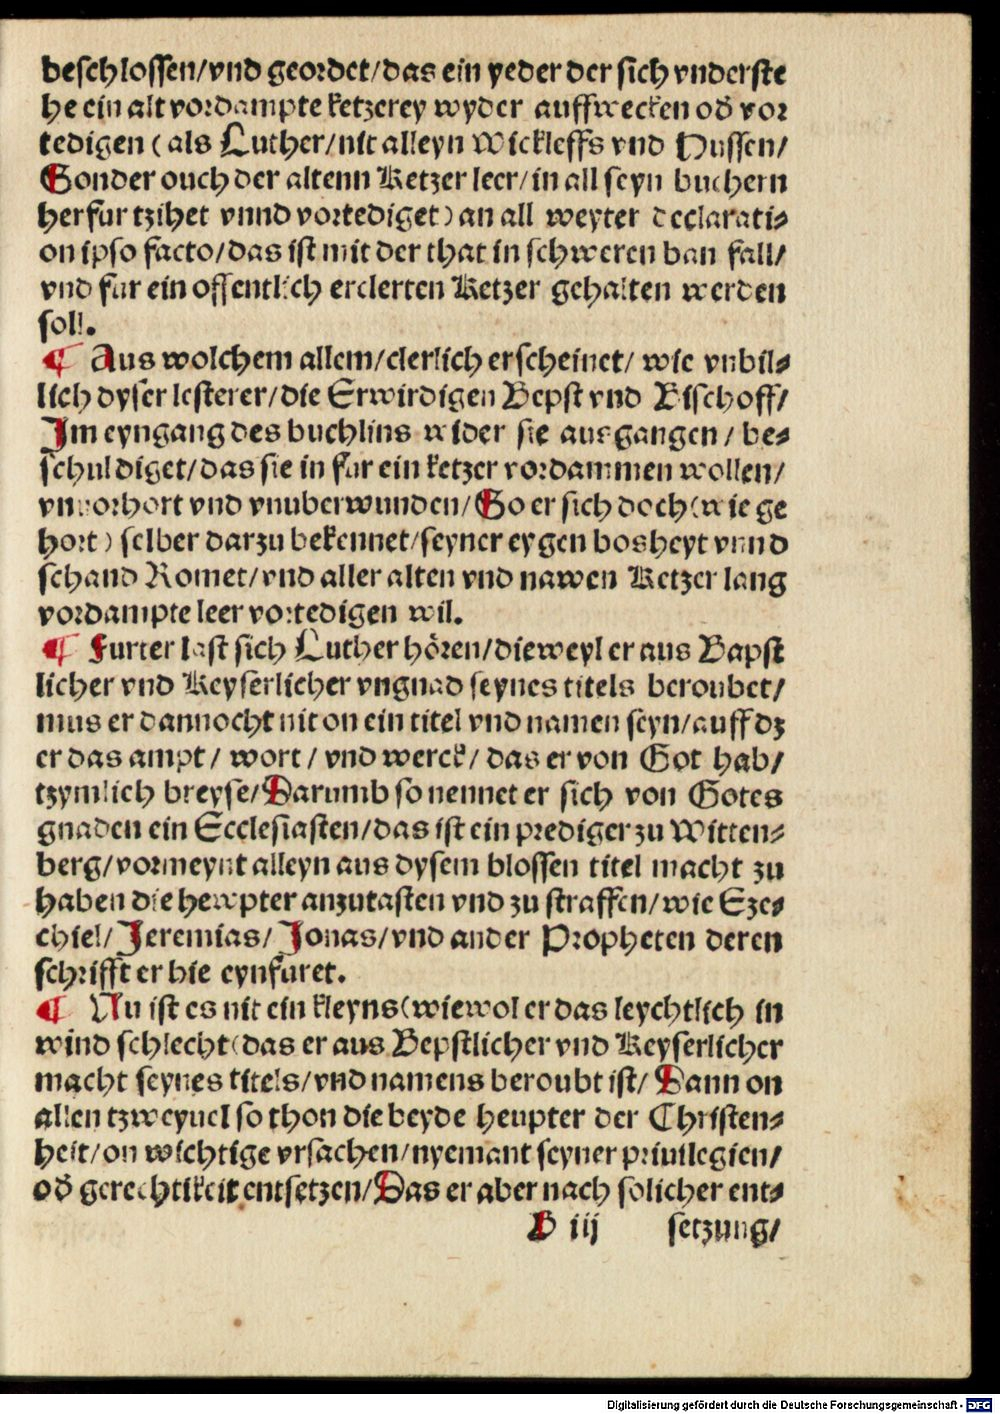 beschlossen/vnd geordet/das ein yeder der sich vnderste
he ein alt vordampte ketzerey wyder auffwecken od̛ vor
tedigen ( als Luther/nit alleyn Wickleffs vnd Hussen/
Sonder ouch der altenn Ketzer leer/in all seyn buchern
herfur tzihet vnnd vortediget) an all weyter declarati⸗
on ipso facto/das ist mit der that in schweren ban fall/
vnd fur ein offentlich erclerten Ketzer gehalten werden
soll.
¶ Aus wolchem allem/clerlich erscheinet/ wie vnbil⸗
lich dyser lesterer/die Erwirdigen Bepst vnd Bischoff/
Im eyngang des buchlins wider sie ausgangen / be⸗
schuldiget/das sie in fur ein ketzer vordammen wollen/
vnvorhort vnd vnuberwunden/So er sich doch(wie ge
hort) selber darzu bekennet/seyner eygen bosheyt vnnd
schand Romet/vnd aller alten vnd nawen Ketzer lang
vordampte leer vortedigen wil.
¶ Furter last sich Luther hören/dieweyl er aus Bapst
licher vnd Keyserlicher vngnad seynes titels beroubet/
mus er dannocht nit on ein titel vnd namen seyn/auff dz
er das ampt/ wort/ vnd werck/ das er von Got hab/
tzymlich breyse/Darumb so nennet er sich von Gotes
gnaden ein Ecclesiasten/das ist ein prediger zu Witten⸗
berg/vormeynt alleyn aus dysem blossen titel macht zu
haben die hewpter anzutasten vnd zu straffen/wie Eze⸗
chiel/Jeremias/Jonas/vnd ander Propheten deren
schrifft er hie eynfuret.
¶ Nu ist es nit ein kleyns(wiewol er das leychtlich in
wind schlecht(das er aus Bepstlicher vnd Keyserlicher
macht seynes titels/vnd namens beroubt ist/ Dann on
allen tzweyuel so thon die beyde heupter der Christen⸗
heit/on wichtige vrsachen/nyemant seyner priuilegien/
od̛ gerechtikeit entsetzen/Das er aber nach solicher ent⸗
B iij setzung/
Digitalisierung gefördert durch die Deutsche Forschungsgemeinschaft - DFG